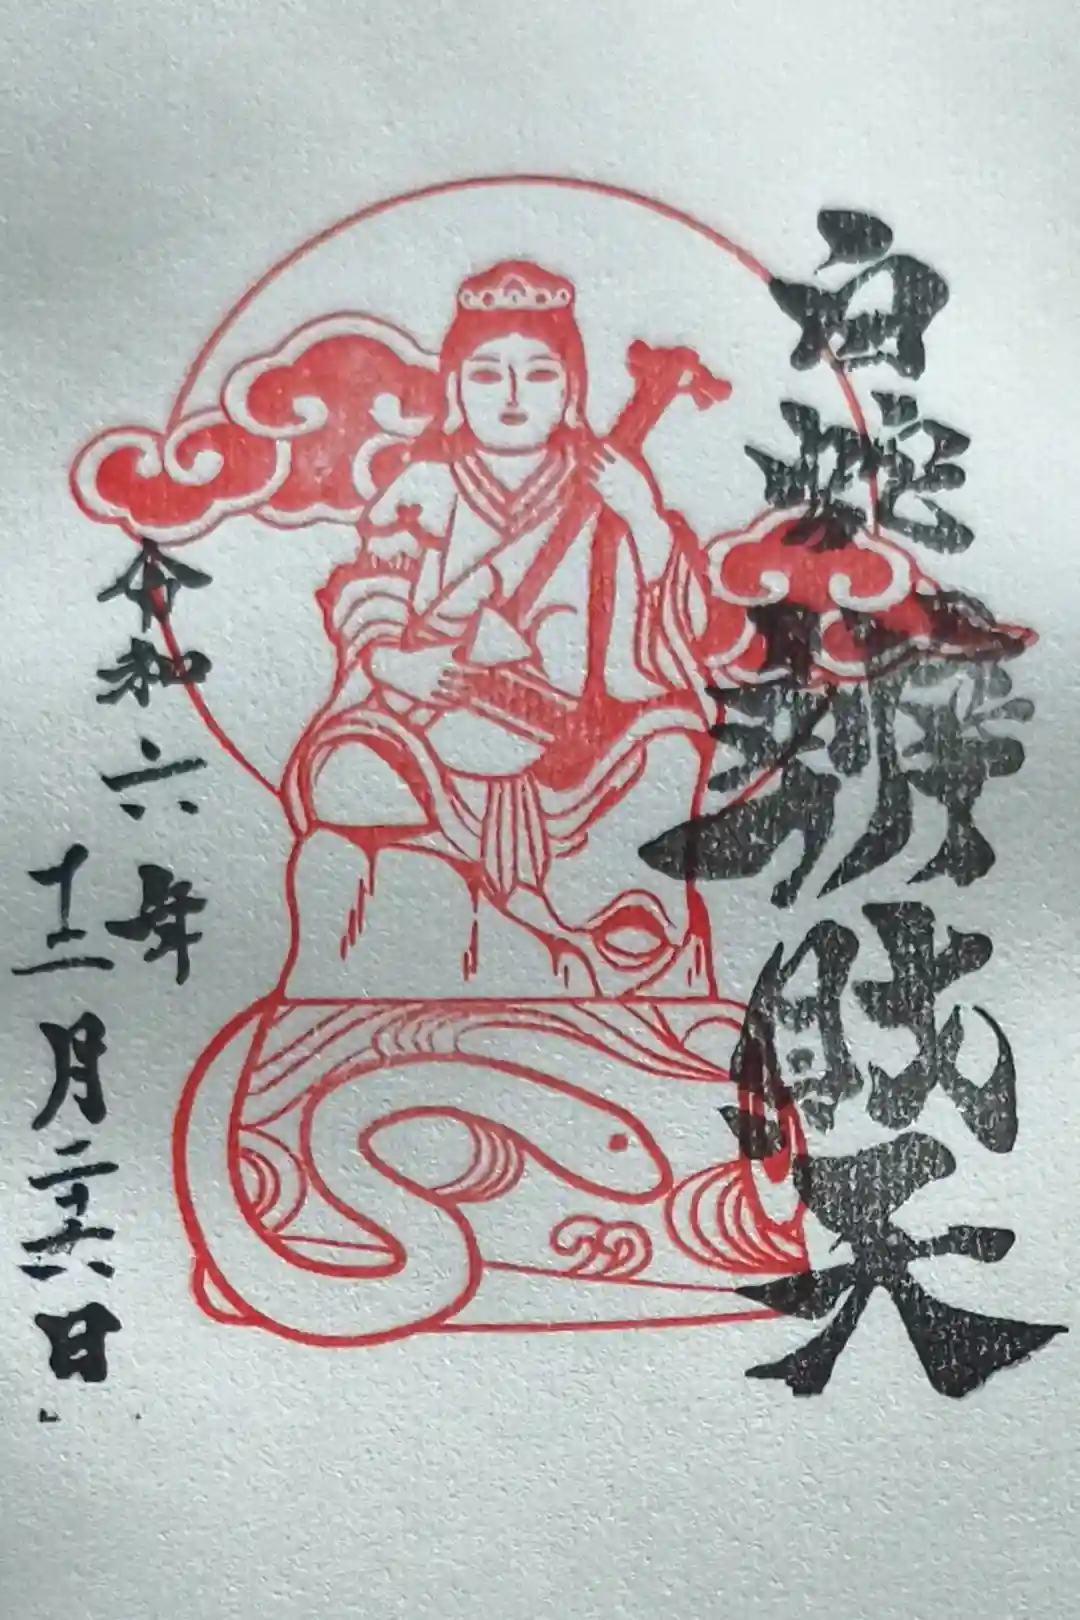 白蛇辨財天
令和六年
十二月二十六日